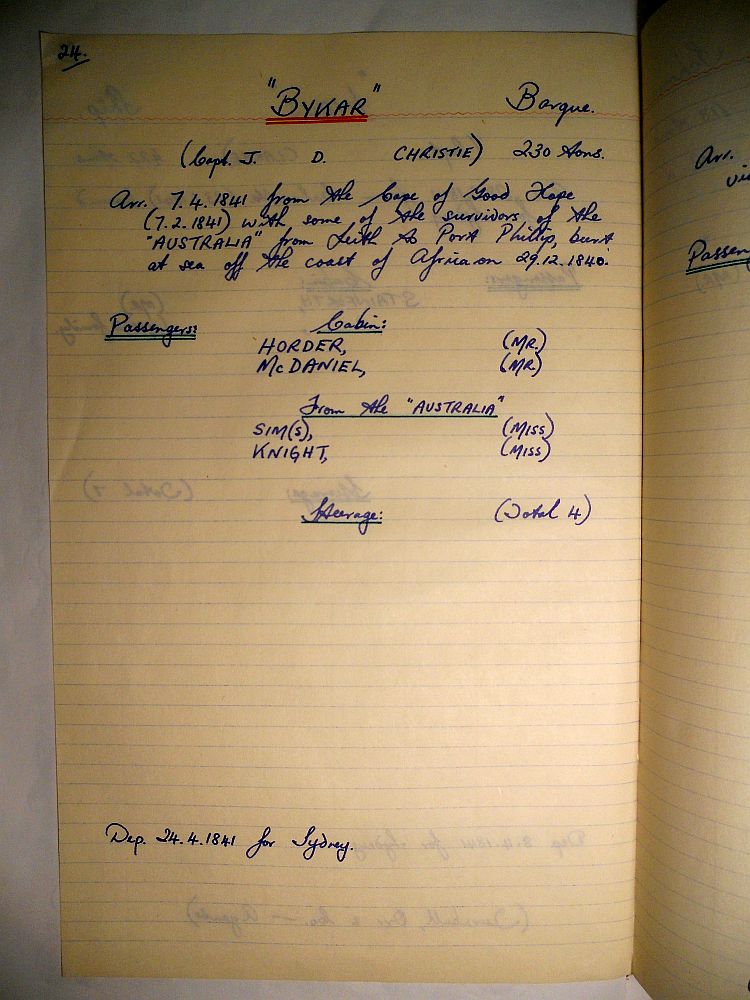 24.
"BYKAR" Barque.
(Capt. J. D. CHRISTIE) 230 tons.
Arr. 7.4.1841 from the Cape of Good Hope
(7.2.1841) with some of the survivors of the
"AUSTRALIA" from Leith to Port Phillip, burnt
at sea off the coast of Africa on 29.12.1840.
Passengers: Cabin:
HORDER, (MR.)
McDANIEL, (MR)
From the "AUSTRALIA"
SIM(S), (MISS)
KNIGHT, (MISS)
Steerage: (Total 4)
Dep. 24.4.1841 for Sydney.
Arr.
Passen